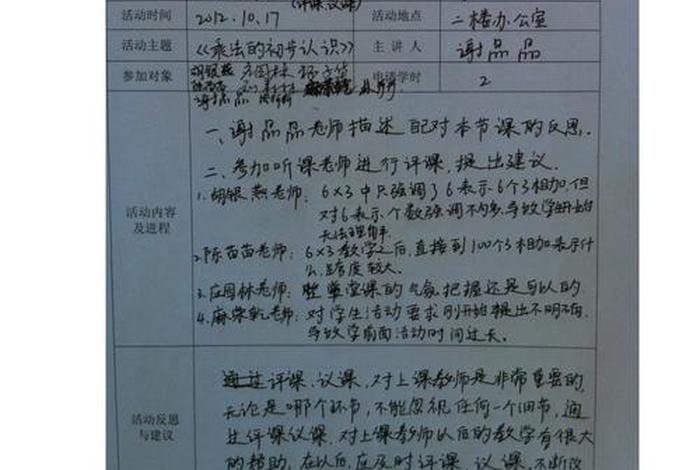 (评课议课)
活动时间 2012.10.17 活动地点 二楼办公室
活动主题 《乘法的初步认识》 主讲人 谢晶晶
参加对象 胡银燕 应园林 申请学时 2
谢晶晶
一、谢晶晶老师描述 对本节课的反思.
二、参加听课老师进行评课,提出建议.
活动内容及进程
1.胡银燕老师: 6×3中只强调了6表示6个3相加,但
对6表示个数强调不够多,导致学生开始时
无法理解.
2.陈苗苗老师: 6×3教学之后,直接到100个3相加表示什
么,跨度较大.
3.应园林老师: 整堂课的气氛把握还是可以的.
4.麻荣乾老师: 对学生活动要求刚开始提出不明确,
导致学前面活动时间过长.
活动反思与建议
通过评课、议课,对上课教师是非常重要的,
无论是哪个环节,不能忽视任何一个细节,通
过评课议课,对上课教师以后的教学有很大
的帮助,在以后,应及时评课、议课,不断改